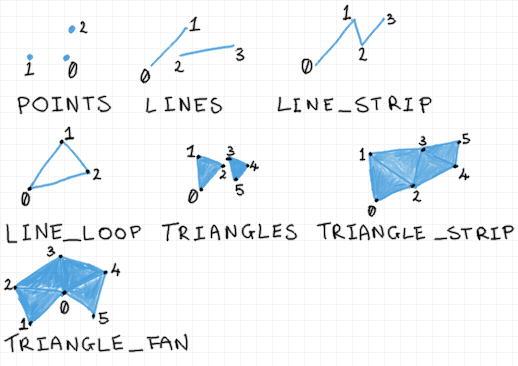 2
1 0
POINTS
1
0 2 3
LINES
1 3
0 2
LINE_STRIP
1
2
0
LINE_LOOP
1 3
2 4
0 5
TRIANGLES
3 5
1
4
2
0
TRIANGLE_STRIP
3
4
2
0
1 5
TRIANGLE_FAN